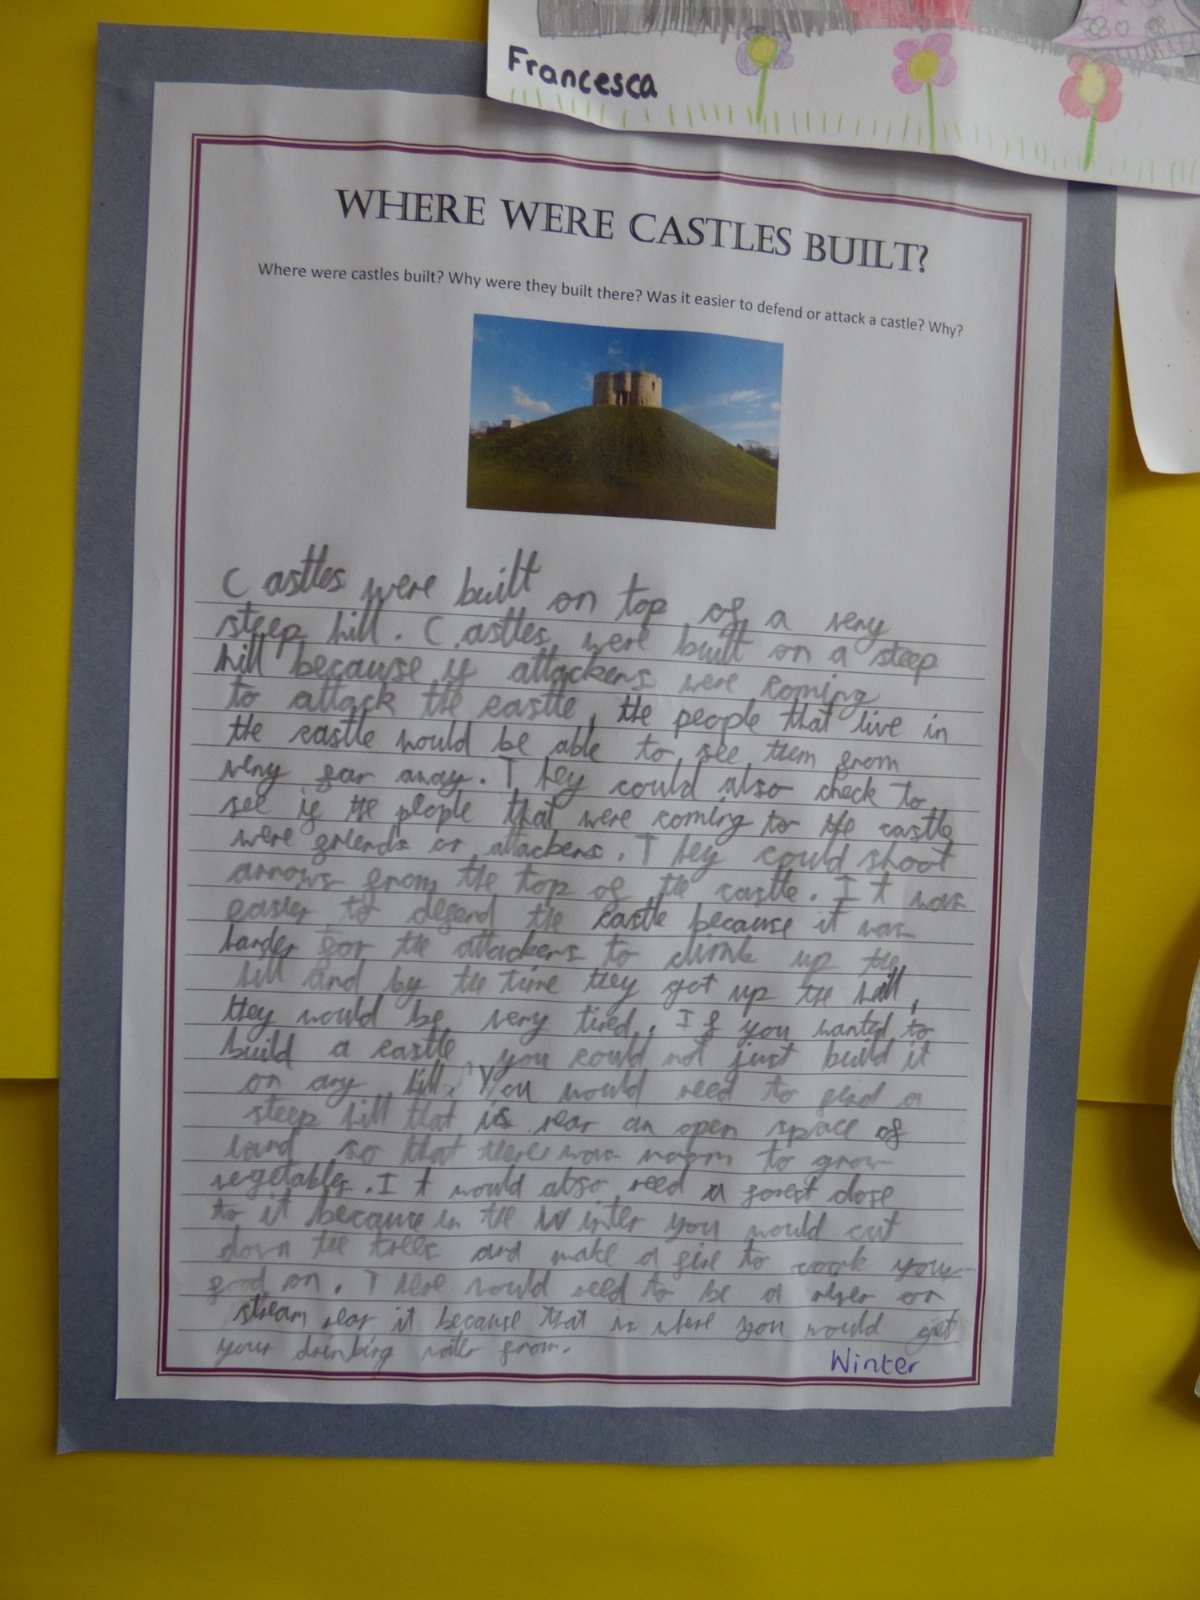 Francesca
WHERE WERE CASTLES BUILT?
Where were castles built? Why were they built there? Was it easier to defend or attack a castle? Why?
Castles were built on top of a very
steep hill. Castles were built on a steep
hill because if attackers were coming
to attack the castle, the people that live in
the castle would be able to see them from
very far away. They could also check to
see if the people that were coming to the castle
were friends or attackers. They could shoot
arrows from the top of the castle. It was
easier to defend the castle because it was
harder for the attackers to climb up the
hill and by the time they got up the hill,
they would be very tired. If you wanted to
build a castle you could not just build it
on any hill. You would need to find a
steep hill that is near an open space of
land so that there was room to grow
vegetables. It would also need a forest close
to it because in the winter you would cut
down the trees and make a fire to cook your
food on. There would need to be a river or
stream near it because that is where you would get
your drinking water from.
Winter